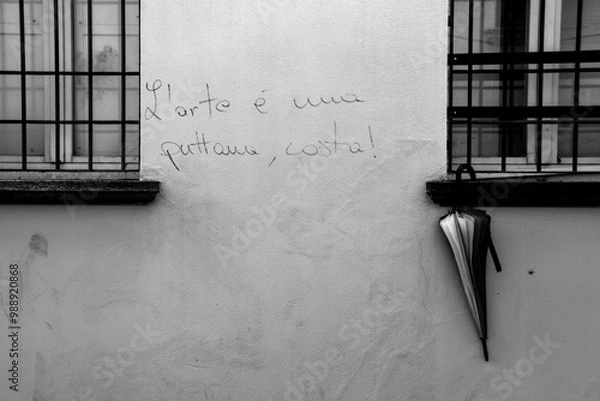 L'arte é una
puttana, costa!
Adobe Stock | #988920868